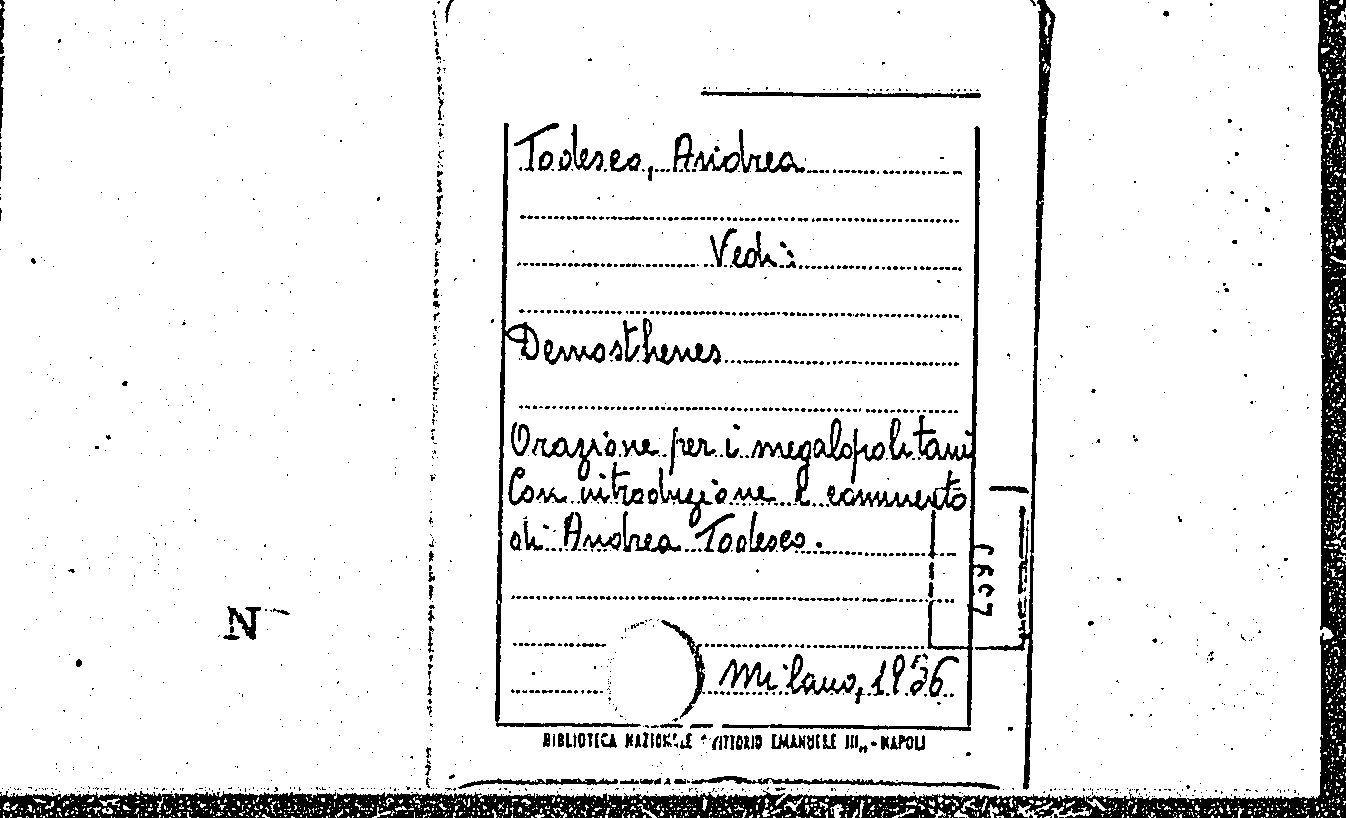 Todesco, Andrea
Vedi:
Demosthenes
Orazione per i megalopolitani
Con introduzione e commento
di Andrea Todesco.
N
Milano, 1936
BIBLIOTECA NAZIONALE "VITTORIO EMANUELE III„ - NAPOLI